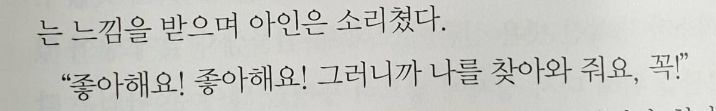 는 느낌을 받으며 아인은 소리쳤다.
“좋아해요! 좋아해요! 그러니까 나를 찾아와 줘요, 꼭!”